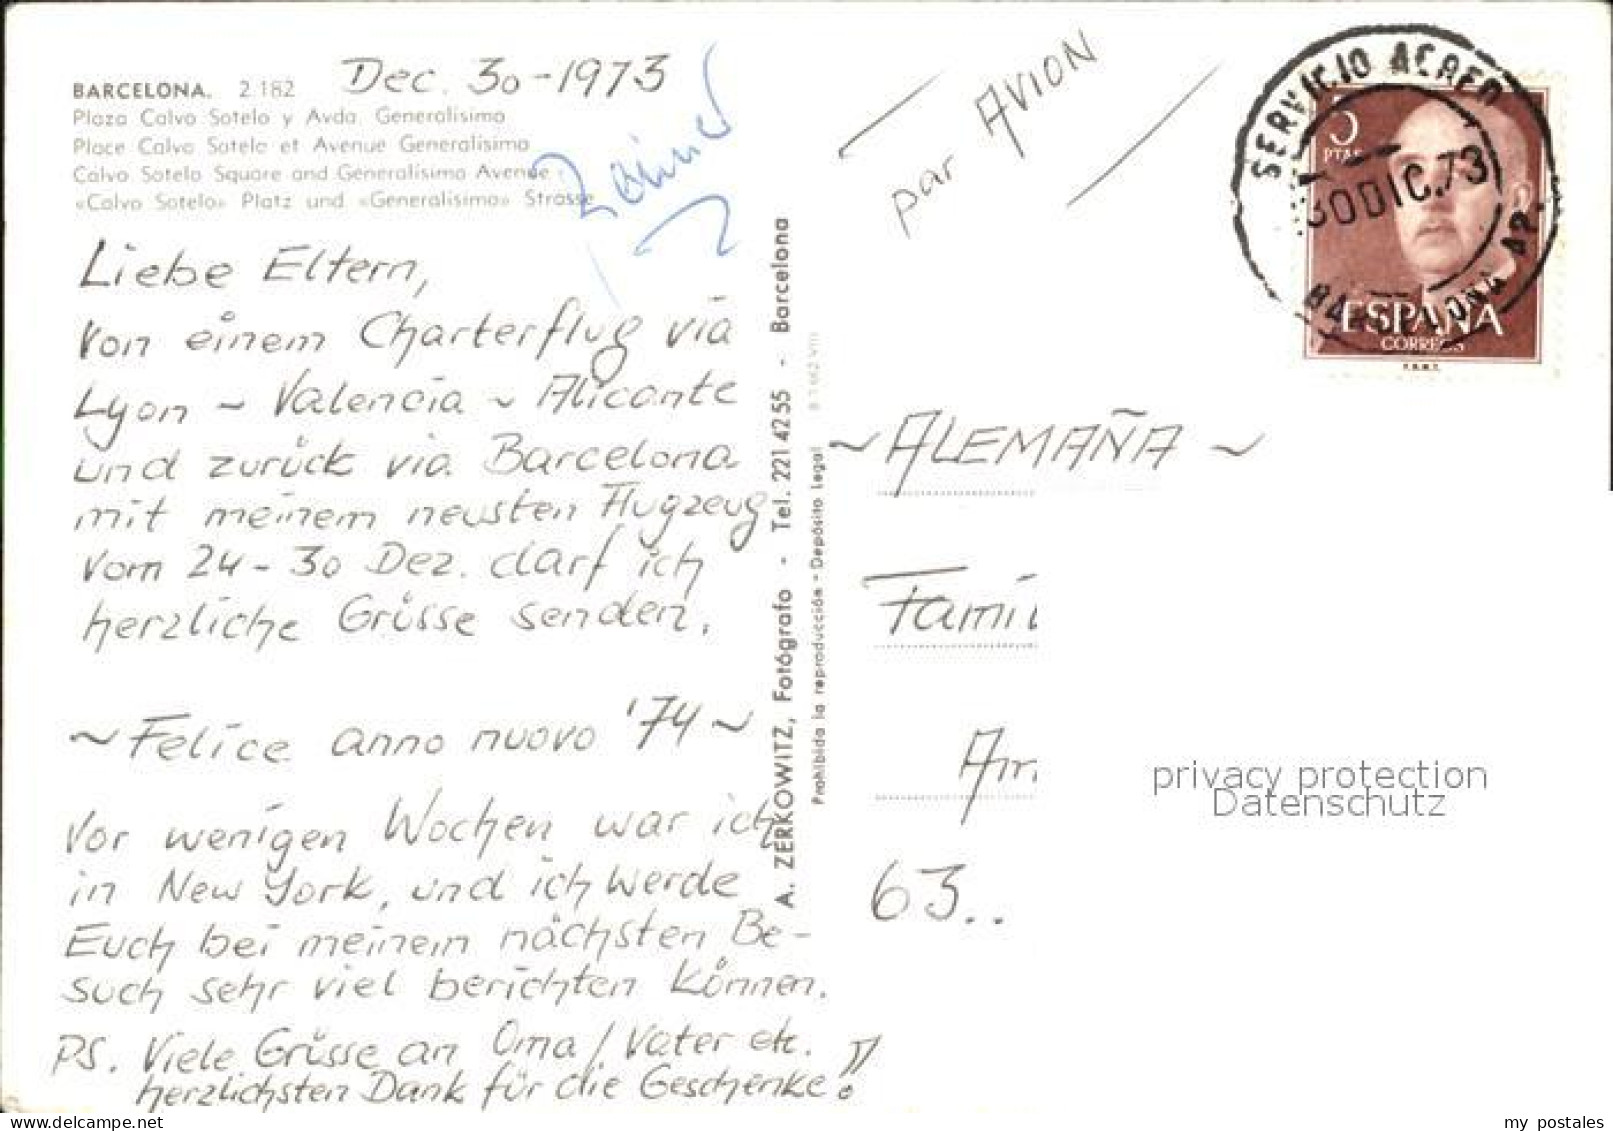 BARCELONA. 2.182
Dec. 30-1973
Plaza Calvo Sotelo y Avda. Generalísimo
Place Calvo Sotelo et Avenue Generalísimo
Calvo Sotelo Square and Generalísimo Avenue
«Calvo Sotelo» Platz und «Generalísimo» Strasse
Liebe Eltern,
von einem Charterflug via
Lyon ~ Valencia ~ Alicante
und zurück via Barcelona
mit meinem neusten Flugzeug
vom 24-30 Dez. darf ich
herzliche Grüsse senden.
~ Felice anno nuovo '74 ~
Vor wenigen Wochen war ich
in New York, und ich werde
Euch bei meinem nächsten Be-
such sehr viel berichten können.
PS. Viele Grüsse an Oma / Vater etc.
herzlichsten Dank für die Geschenke!!
A. ZERKOWITZ, Fotógrafo - Tel. 221 42 55 - Barcelona
Prohibida la reproducción - Depósito legal
par AVION
SERVICIO AEREO
30 DIC. 73
BARCELONA AP.
5
PTAS
ESPAÑA
CORREOS
F.N.M.T.
~ ALEMAÑA ~
Famil
Am
63..
privacy protection
Datenschutz
www.delcampe.net
my_postales